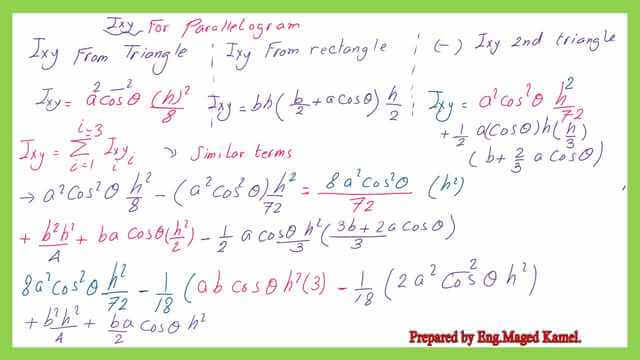 Ixy For Parallelogram
Ixy From Triangle
Ixy From rectangle
(-) Ixy 2nd triangle
Ixy = a² cos²θ (h)²/8
Ixy = bh(b/2 + a cosθ) h/2
Ixy = a² cos²θ h²/72
+ 1/2 a(cosθ)h(h/3)
(b + 2/3 a cosθ)
Ixy = Σ i=1 i=3 Ixy i i Similar terms
→ a² cos²θ h²/8 - (a² cos²θ) h²/72 = 8a² cos²θ/72 (h²)
+ b²h²/4 + ba cosθ(h²/2) - 1/2 a cosθ h²/3 (3b + 2a cosθ/3)
8a² cos²θ h²/72 - 1/18 (ab cosθ h²(3) - 1/18 (2a² cos²θ h²)
+ b²h²/4 + ba/2 cosθ h²
Prepared by Eng.Maged Kamel.